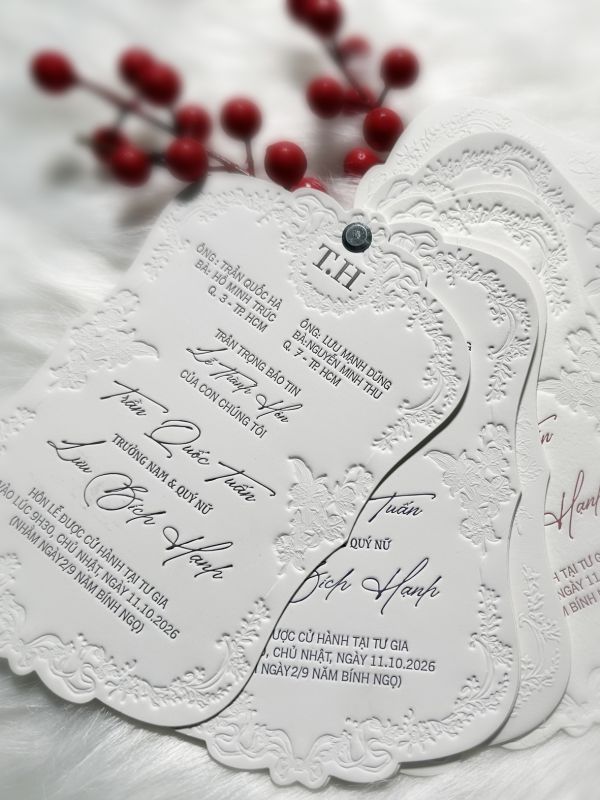 T.H
ÔNG : TRẦN QUỐC HÀ
BÀ: HỒ MINH TRÚC
Q. 3 - TP. HCM
ÔNG: LƯU MẠNH DŨNG
BÀ:NGUYỄN MINH THU
Q. 7 - TP. HCM
TRÂN TRỌNG BÁO TIN
Lễ Thành Hôn
CỦA CON CHÚNG TÔI
Trần Quốc Tuấn
TRƯỞNG NAM & QUÝ NỮ
Lưu Bích Hạnh
HÔN LỄ ĐƯỢC CỬ HÀNH TẠI TƯ GIA
VÀO LÚC 9H30, CHỦ NHẬT, NGÀY 11.10.2026
(NHẰM NGÀY 2/9 NĂM BÍNH NGỌ)
Tuấn
QUÝ NỮ
Bích Hạnh
ƯỢC CỬ HÀNH TẠI TƯ GIA
, CHỦ NHẬT, NGÀY 11.10.2026
M NGÀY2/9 NĂM BÍNH NGỌ)
Hạnh
H TẠI TƯ GIA
NGÀY 11
BÍNH NGỌ)